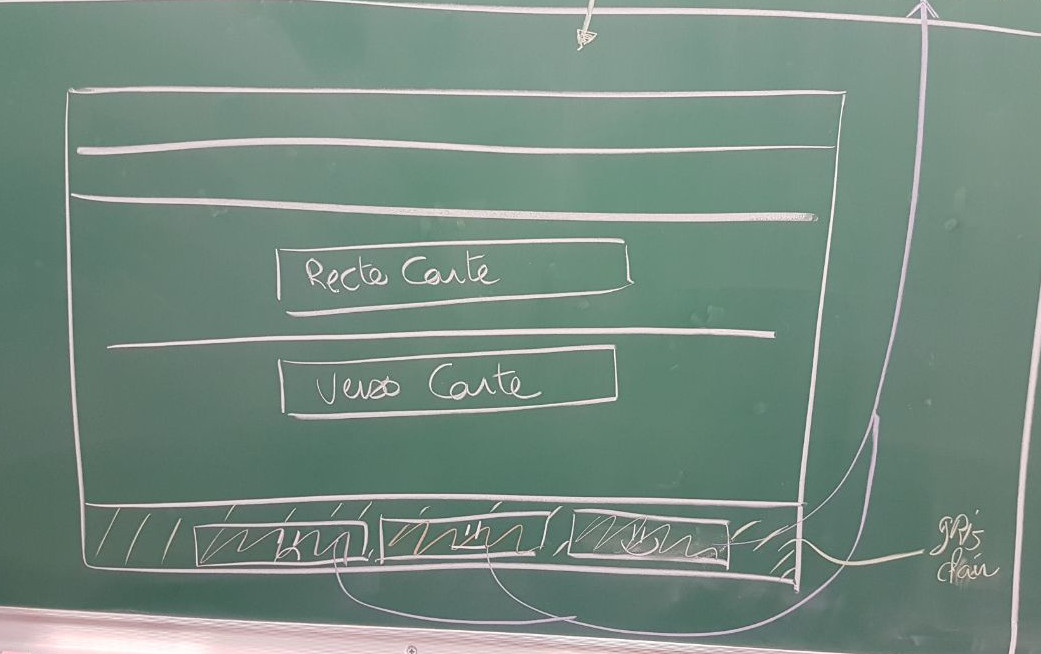 Recto Carte
Verso Carte
gris
clair